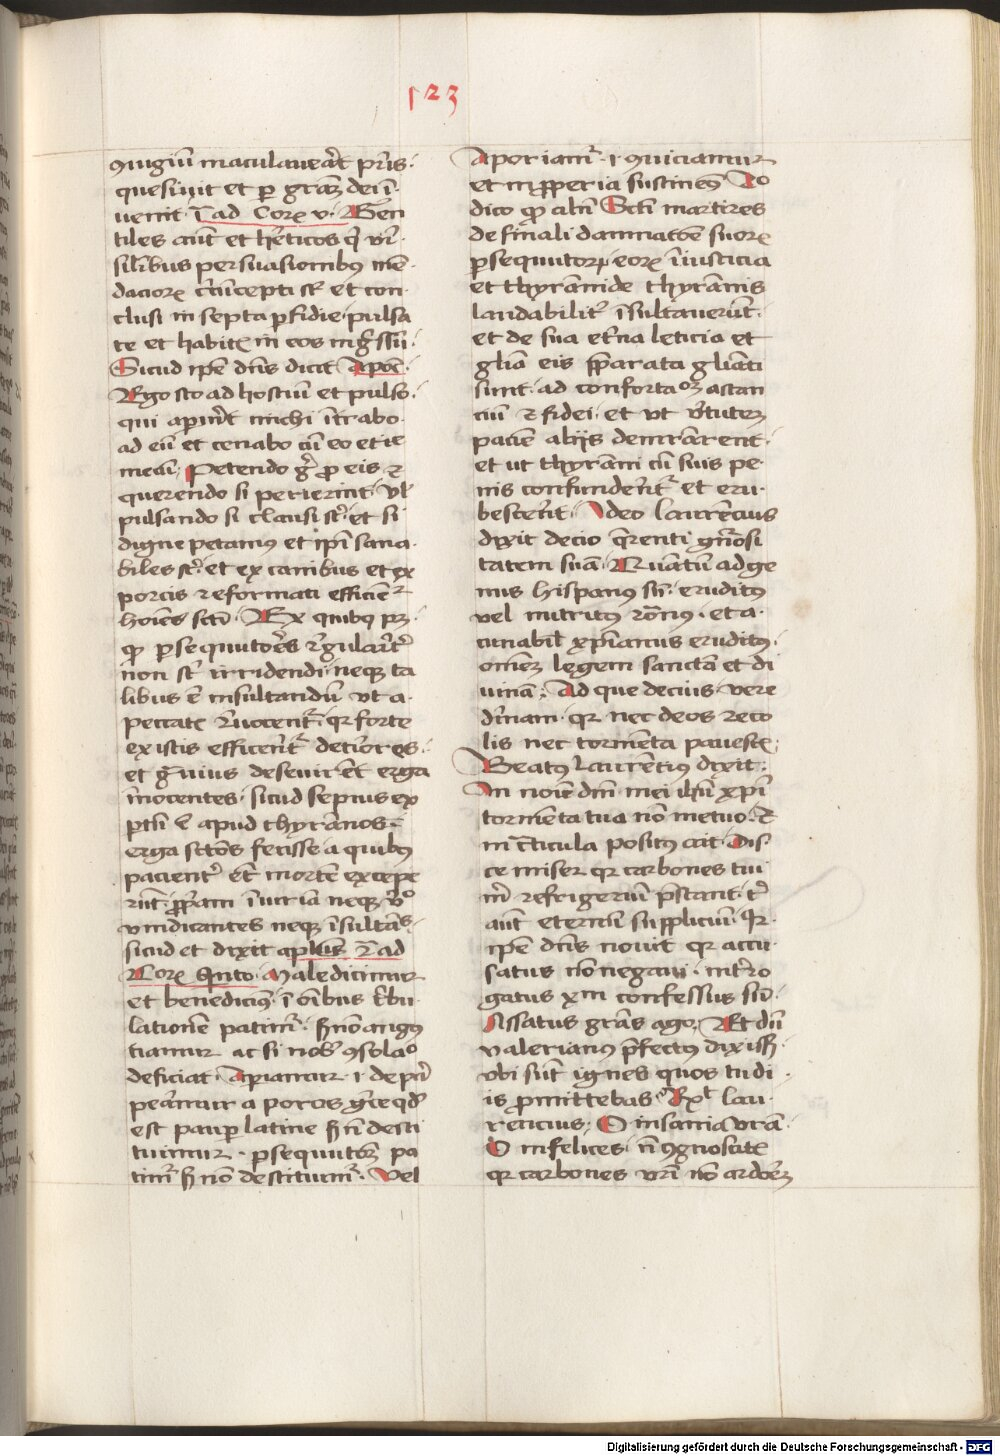 123
ꝯiugiū maculaueāt p̄ris·
quesiuit et ꝑ grām dei ī
uenit· ī ad Corꝝ v· Gen
tiles aūt et h̄eticos q̄
silibus persuasionibꝰ men
dacioꝝ circūcepti sꝉ et con
clusi in septa ꝑfidie pulsa
te et habitꝫ in eos īgssū·
Sicud ip̄e dn̄s dicit Apoc̄·
Ego sto ad hostiū et pulso·
qui apuit michi ītrabo
ad eū et cenabo cū eo et ip̄e
mecū· Petendo g̊ pro eis ⁊
querendo si perierint· vl̄
pulsando si clausi sꝉ· et si
digne petamꝰ et ip̄i sana
biles sꝉ· et ex canibus et ex
porcis reformati efficient̄
hoīes sc̄ti· Ex quibꝰ pꝫ
ꝙ ꝑsequutōes regulariter
non sꝉ irridendi neqꝫ ta
libus ē insultandū vt a
peccatꝫ reuocent̄· qꝛ forte
ex istis efficerent̄ deteriores·
et g̃uius deseuirent erga
īnocentes· sicud sepius ex
pertū ē apud thyrānos·
erga sctōs fecisse a quibꝰ
pacienter etiā mortem excepe
rūt· ꝓpriam īiuriā neqꝫ v̊
vindicantes neqꝫ īsultātes·
sicud et dixit apl̄us ī ad
Corꝝ Quito· Maledicimur
et benedicimꝰ· ī oībus t̄bu
lationem patim̄· sꝫ nō angus
tiamur ac si nob̄ ꝯsolao
deficiat· Aporiamur· i· de pau
peāmur a poros g̊ce qd̄
est pauꝑ latine sꝫ nō desti
tuimur· ꝑsequutōem pa
tim̄ sꝫ nō destituim̄· Vel
Aporiam̄· i· ꝯuiciamur
et īproperia sustinemꝰ Ad
dico ꝓ alīn Sc̄ti martires
de finali damnacōe suoꝝ
ꝑsequutoꝝ eoꝝ īiusticia
et thyrāmide thyrānis
laudabiliter īsultauerūt·
et de sua et̄na leticia et
gl̄ia eis p̄parata gl̄iati
sunt· ad confortaoꝫ astan
ciū ⁊ fidei· et vt v̄tutem
pacīe alijs demrārent·
et ut thyrāni cū suis pe
nis confunderent̄ et eru
bescerēt· Ideo laurēcius
dixit decio q̄renti gn̄osi
tatem suā· Quātū ad ge
nus hispanꝰ sū· eruditꝰ
vel nutritꝰ rōnus· et a
cunabilis xp̄ianus eruditꝰ·
omēm legem sanctā et di
uinā· Ad que decius· vere
diuinam· qꝛ nec deos reco
lis nec tormēta pauescꝫ·
Beatꝰ laurētius dixit·
In noīe dn̄i mei ihū xp̄i
tormēta tua nō metuo· Et
in craticula positꝰ ait· Dis
ce miser qꝛ carbones tui
m̄ refrigeriū p̄stant· t̄
aūt eternū suppliciū· qꝛ
ip̄e dn̄s nouit qꝛ accu
satus nō negaui· int̄ro
gatus xm̄ confessus sū·
Assatus grās ago· Et dū
valerianꝰ p̄fectꝰ dixisset·
vbi sūt ignes quos tu di
is promittebas· Rx̄t lau
rencius· O insania vr̄a·
O infelices· nō ꝯgnoscitꝫ
qꝛ carbones vr̄i nō ardōrem
Digitalisierung gefördert durch die Deutsche Forschungsgemeinschaft - DFG